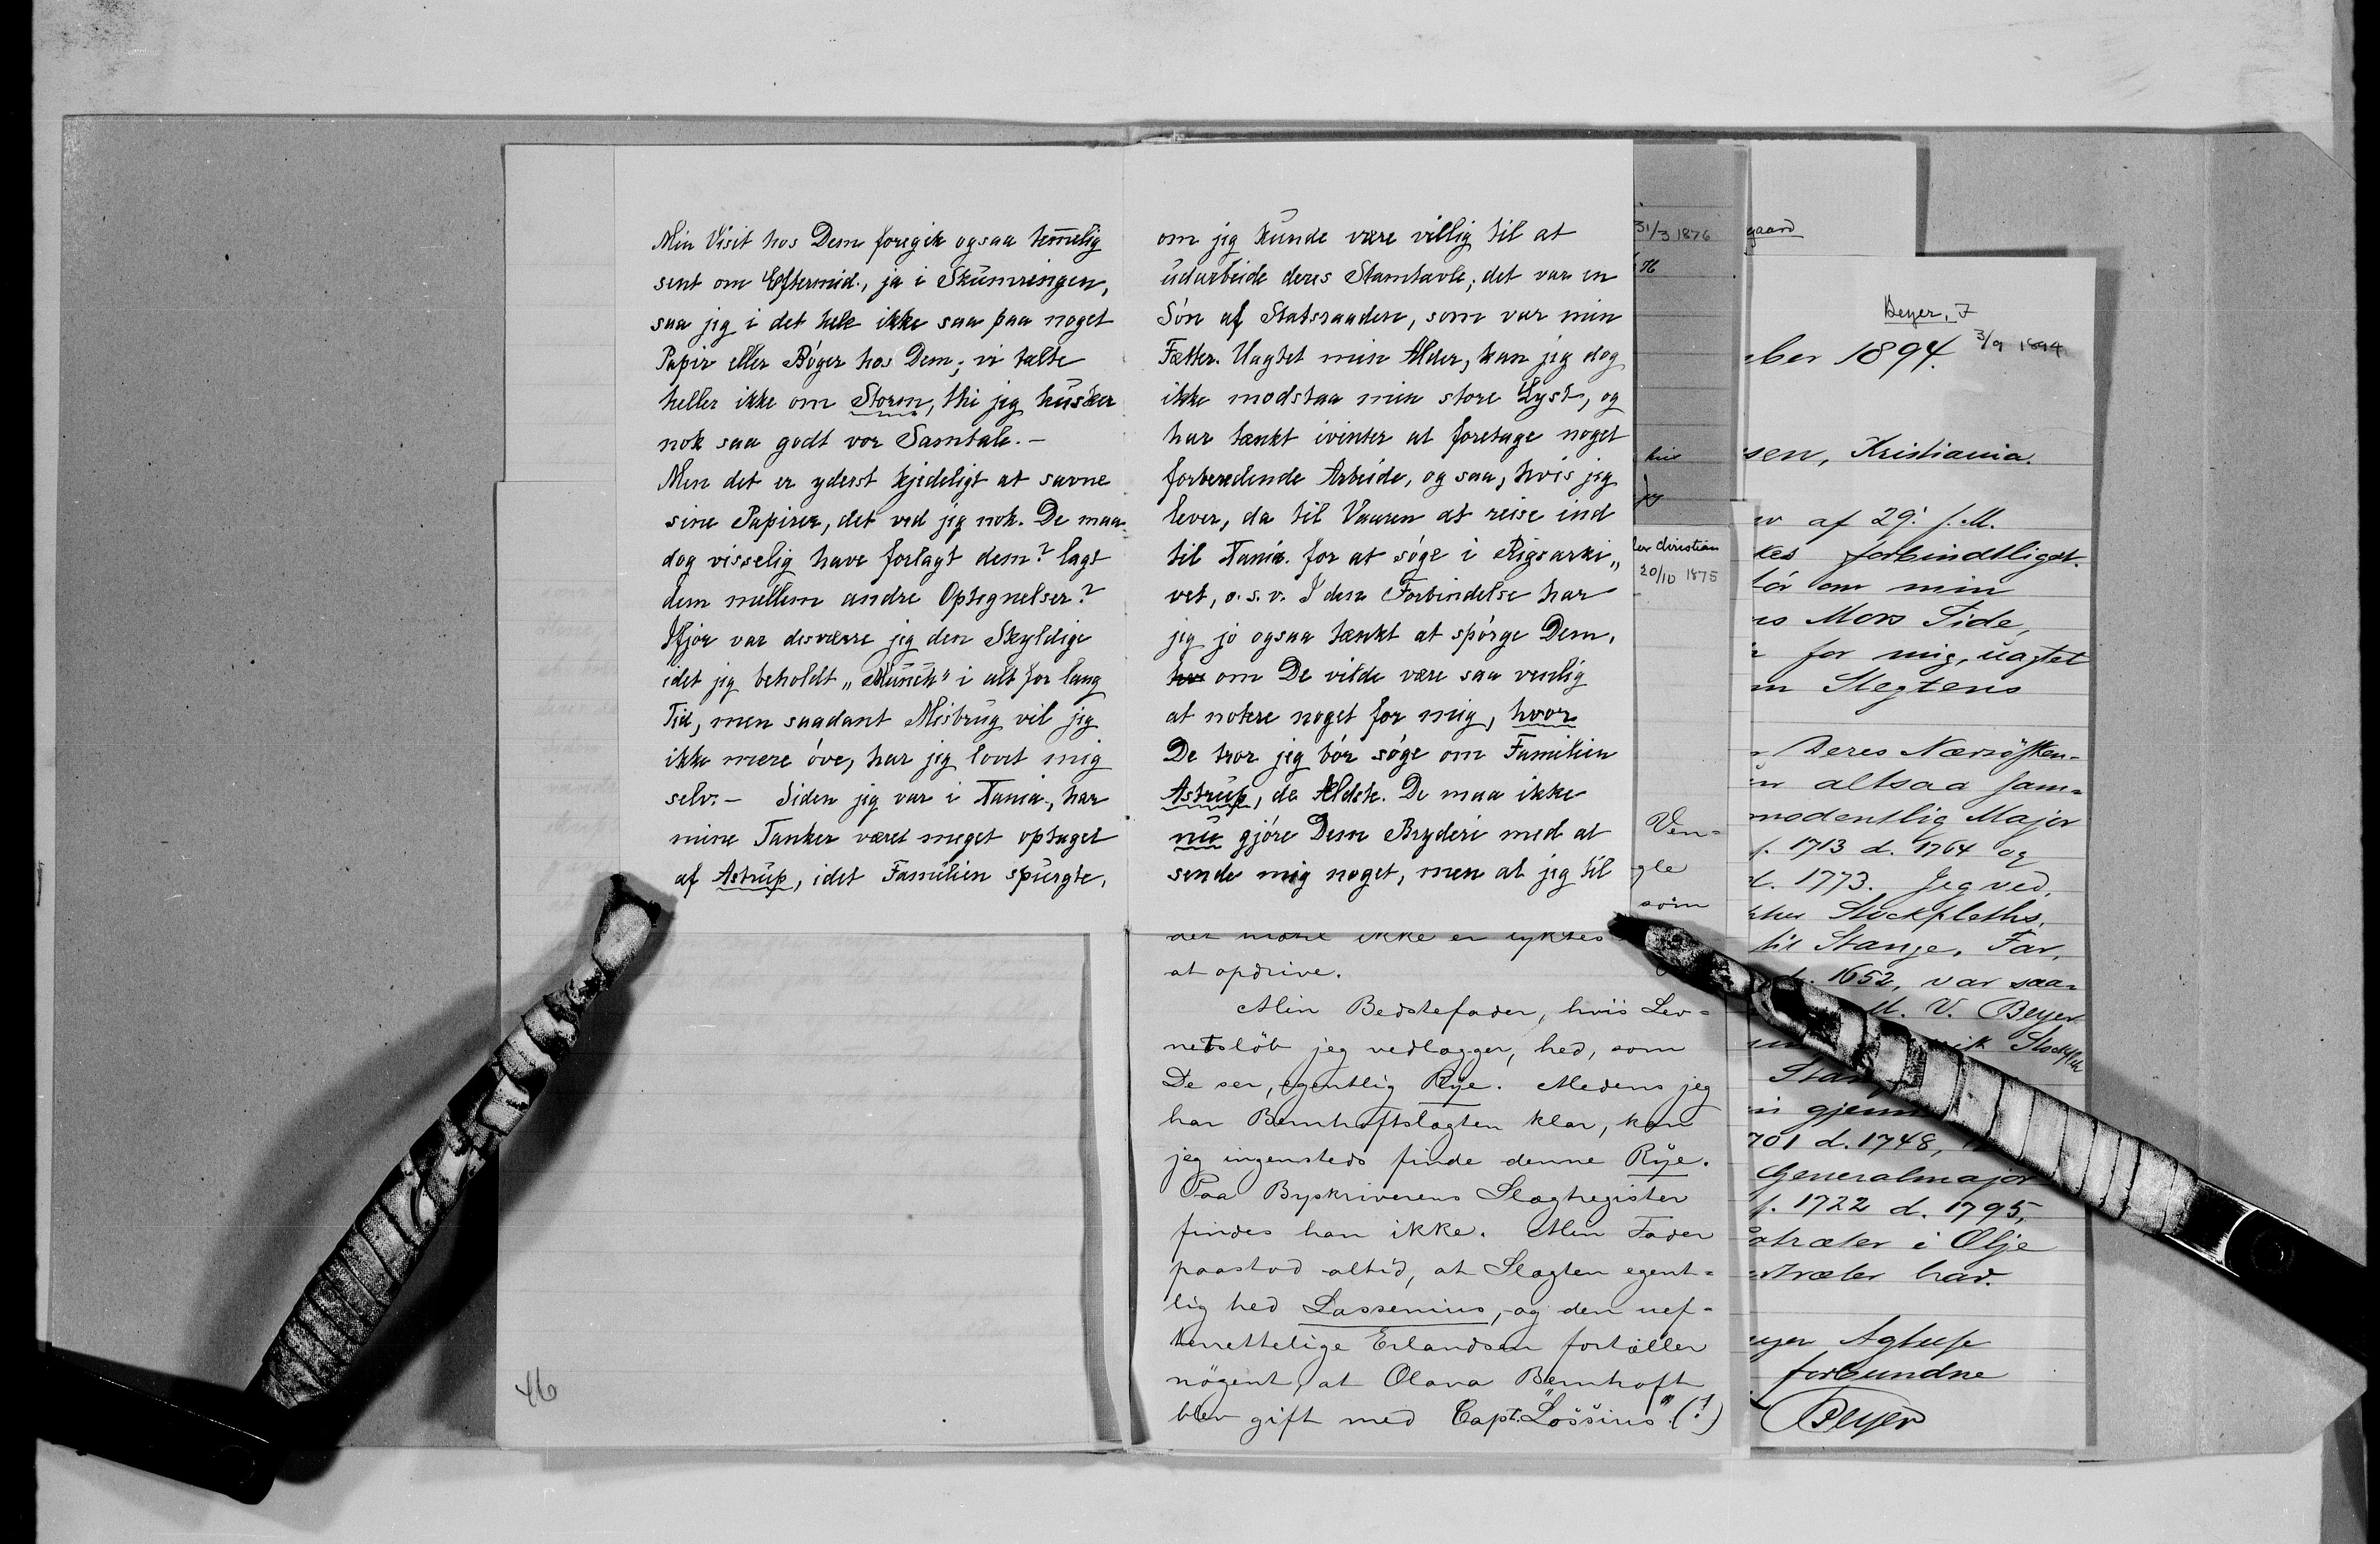 Min Visit hos Dem foregik ogsaa temmelig
sent om Eftermid., ja i Skumringen,
saa jeg i det hele ikke saa paa noget
Papir eller Bøger hos Dem; vi talte
heller ikke om Storm, thi jeg husker
nok saa godt vor Samtale. –
Men det er yderst kjedeligt at savne
sine Papirer, det ved jeg nok. De maa
dog visselig have forlagt dem? lagt
dem mellem andre Optegnelser?
Ifjor var desværre jeg den Skyldige
idet jeg beholdt „Munch" i alt for lang
Tid, men saadant Misbrug vil jeg
ikke mere øve, har jeg lovet mig
selv. – Siden jeg var i Xania, har
mine Tanker været meget optaget
af Astrup, idet Familien spurgte,
46
om jeg kunde være villig til at
udarbeide deres Stamtavle; det var en
Søn af Statsraaden, som var min
Fætter. Uagtet min Alder, kan jeg dog
ikke modstaa min store Lyst, og
har tænkt ivinter at foretage noget
forberedende Arbeide, og saa, hvis jeg
lever, da til Vaaren at reise ind
til Xania. for at søge i Rigsarki„
vet, o.s.v. I den Forbindelse har
jeg jo ogsaa tænkt at spørge Dem,
om De vilde være saa venlig
at notere noget for mig, hvor
De tror jeg bør søge om Familien
Astrup, de Ældste. De maa ikke
nu gjøre Dem Bryderi med at
sende mig noget, men at jeg til
det ikke er lyktes
at opdrive.
Min Bedstefader, hvis Lev=
netsløb jeg vedlægger, hed, som
De ser, egentlig Rye. Medens jeg
har Bernhoftslægten klar, kan
jeg ingensteds finde denne Rye.
Paa Byskriverens Slægtregister
findes han ikke. Min Fader
paastod altid, at Slægten egent=
lig hed Lassenius, og den uef=
terrettelige Erlandsen fortæller
nøgent, at Olava Bernhoft
blev gift med Capt. Lössius" (?)
31/3 1876
76
christian
20/10 1875
Ven=
gle
som
gaard
Beyer, F
3/9 1894
ber 1894.
sen, Kristiania.
af 29. f. M.
kes forbindtligst.
om min
Mors Side,
for mig, uagtet
Slegtens
Deres Næsøsken=
altsaa sam=
modentlig Major
f. 1713 d. 1764 og
d. 1773. Jeg ved,
Stockfleths,
til Stange, Far,
d. 1652, var saa=
M. V. Beyer
ik Stockfleth
Stan
gjenn
701 d. 1748,
Generalmajor
f. 1722 d. 1795,
træter i Olje
træter har.
Agtelse
forbundne
Beyer